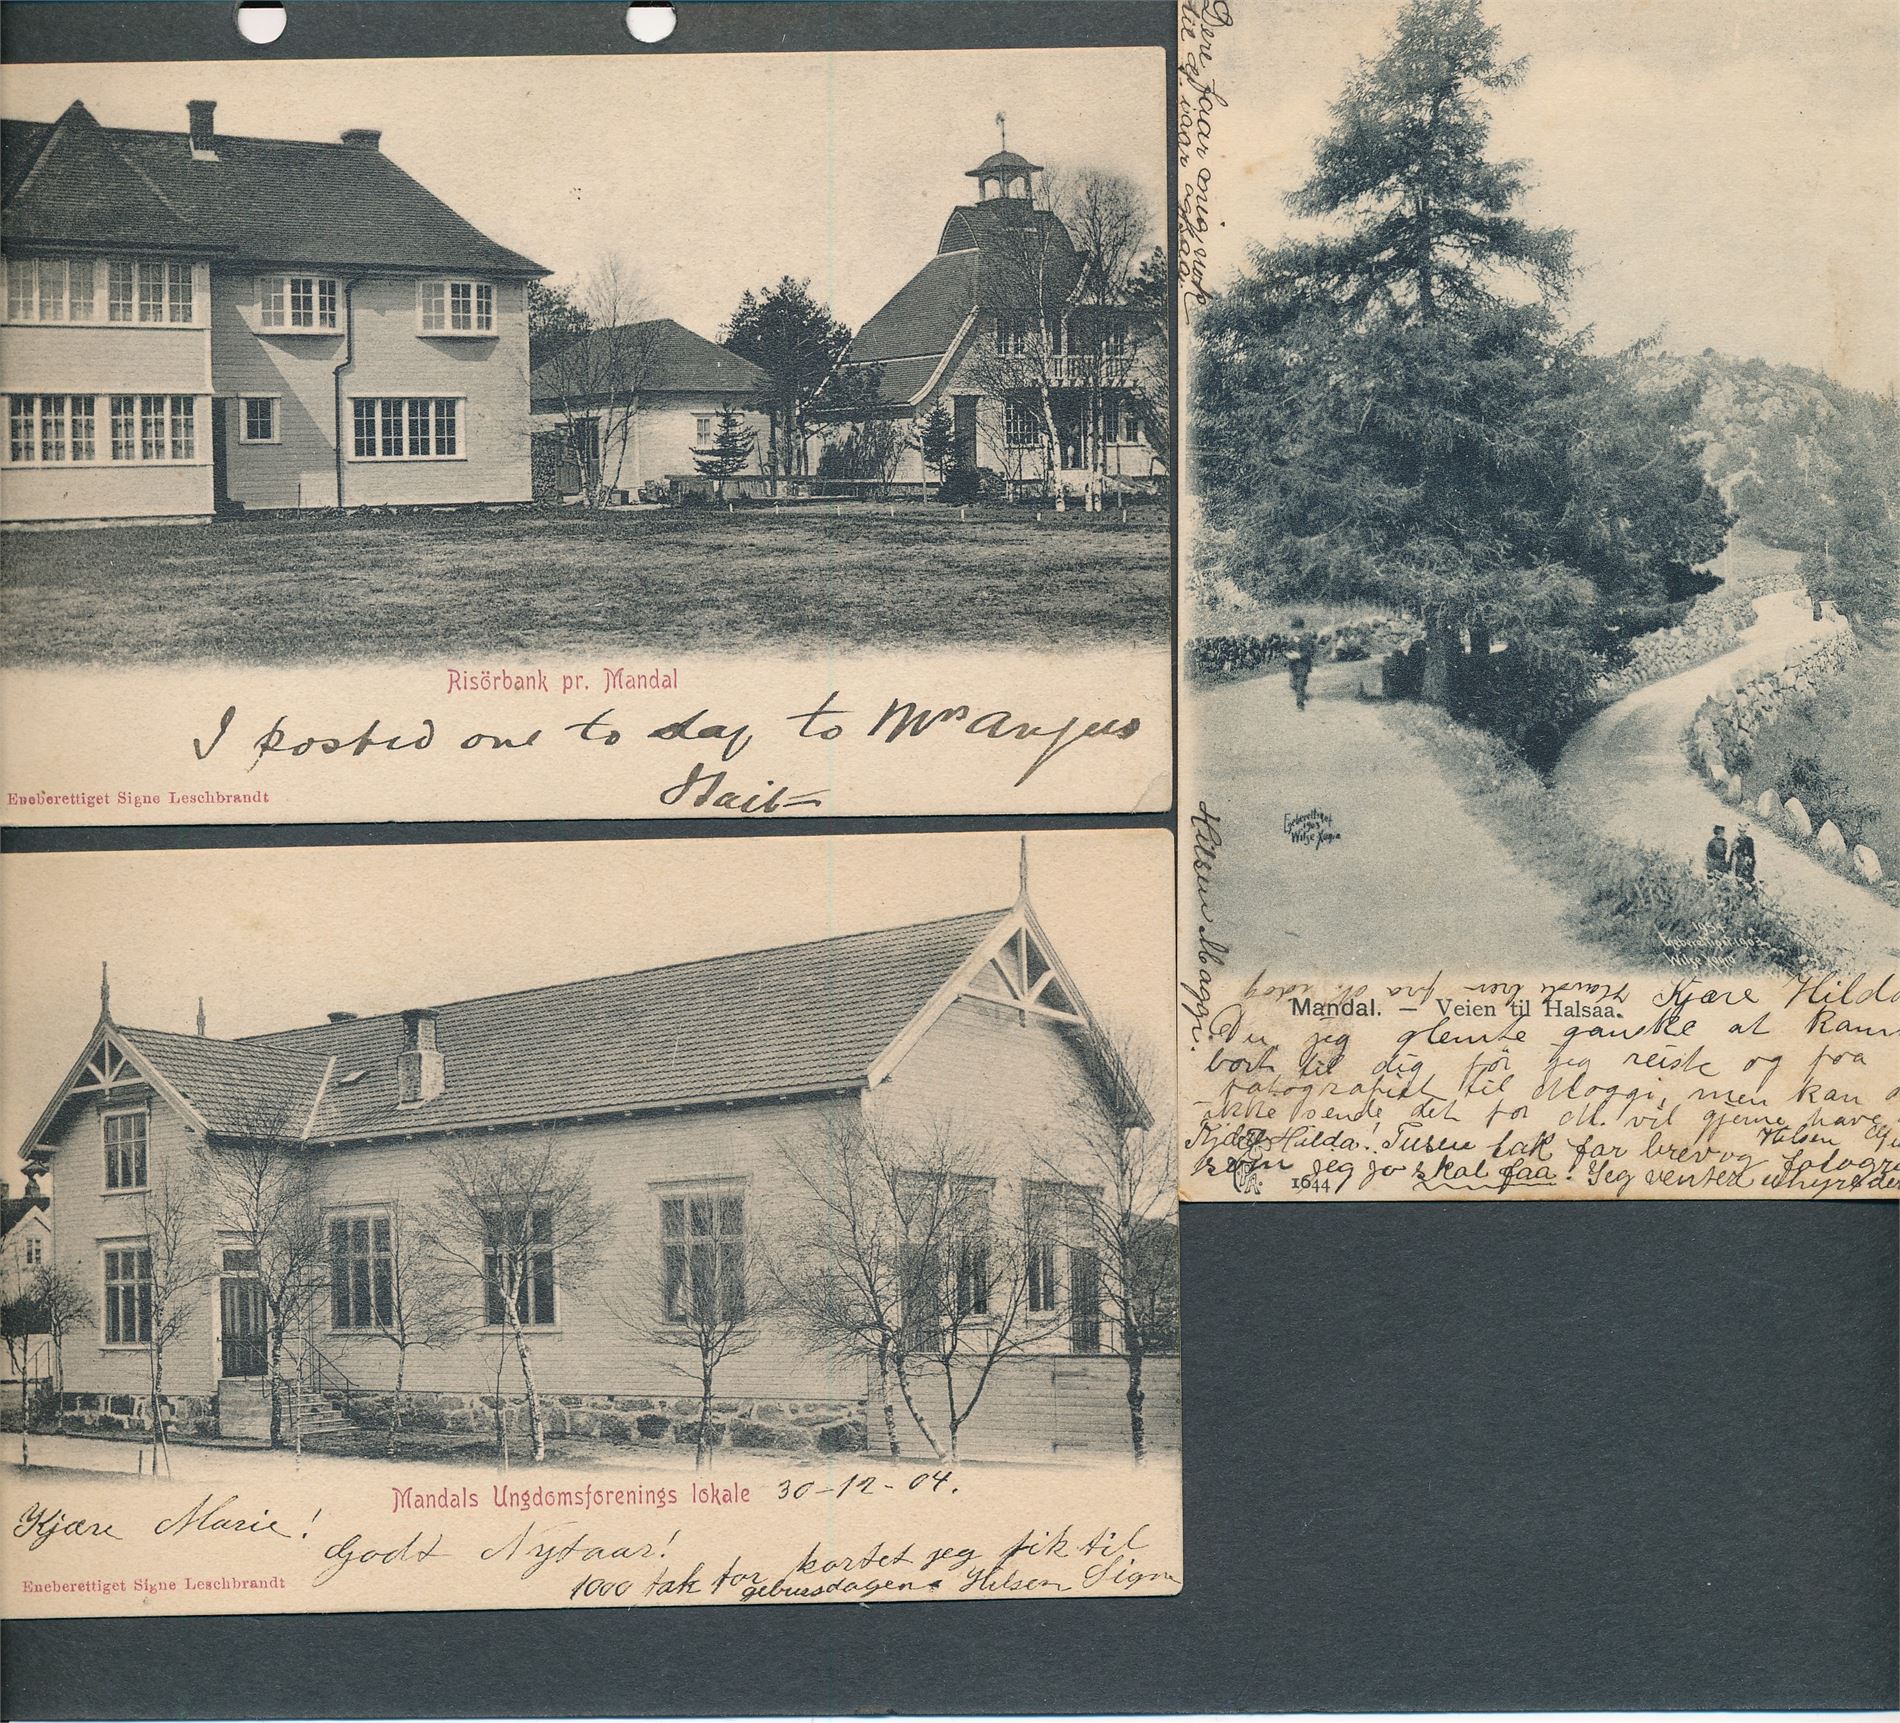 Risörbank pr. Mandal
I posted one to day to Mrs Angus
Eneberettiget Signe Leschbrandt
Mandals Ungdomsforenings lokale 30-12-04.
Kjære Marie!
Godt Nytaar!
1000 tak for kortet jeg fik til
gebursdagen. Hilsen Signe
Eneberettiget Signe Leschbrandt
Dere faar mig nok
Hilsen Maggi.
Eneberettiget
1903
Wilse Xania
Eneberettiget 1903
Wilse Xania
Mandal. — Veien til Halsaa.
Kjære Hilda
Du, jeg glemte ganske at
bort til dig för jeg reiste og faa
fatografiet til Moggi, men kan
ikke sende det for M. vil gjerne have
Hilsen
Kjære Hilda! Tusen tak for brev og
som jeg jo skal faa! Jeg venter
1644